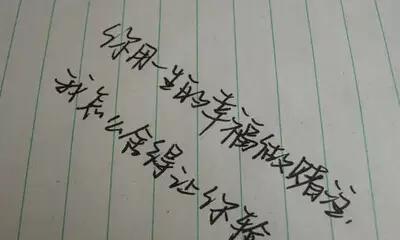 你用一生的幸福做赌注
我怎么舍得让你输